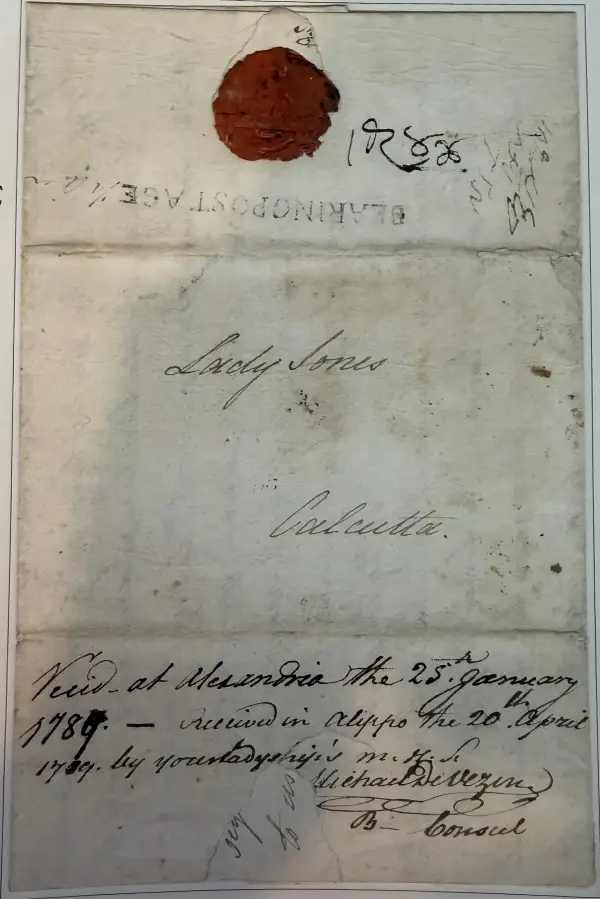 BEARING POSTAGE
Lady Jones
Calcutta.
Recid - at Alexandria the 25.th January
1789. — Received in Aleppo the 20.th April
1789. by your Ladyship's m. h. s.
Michael De Vezin
B— Consul
to us